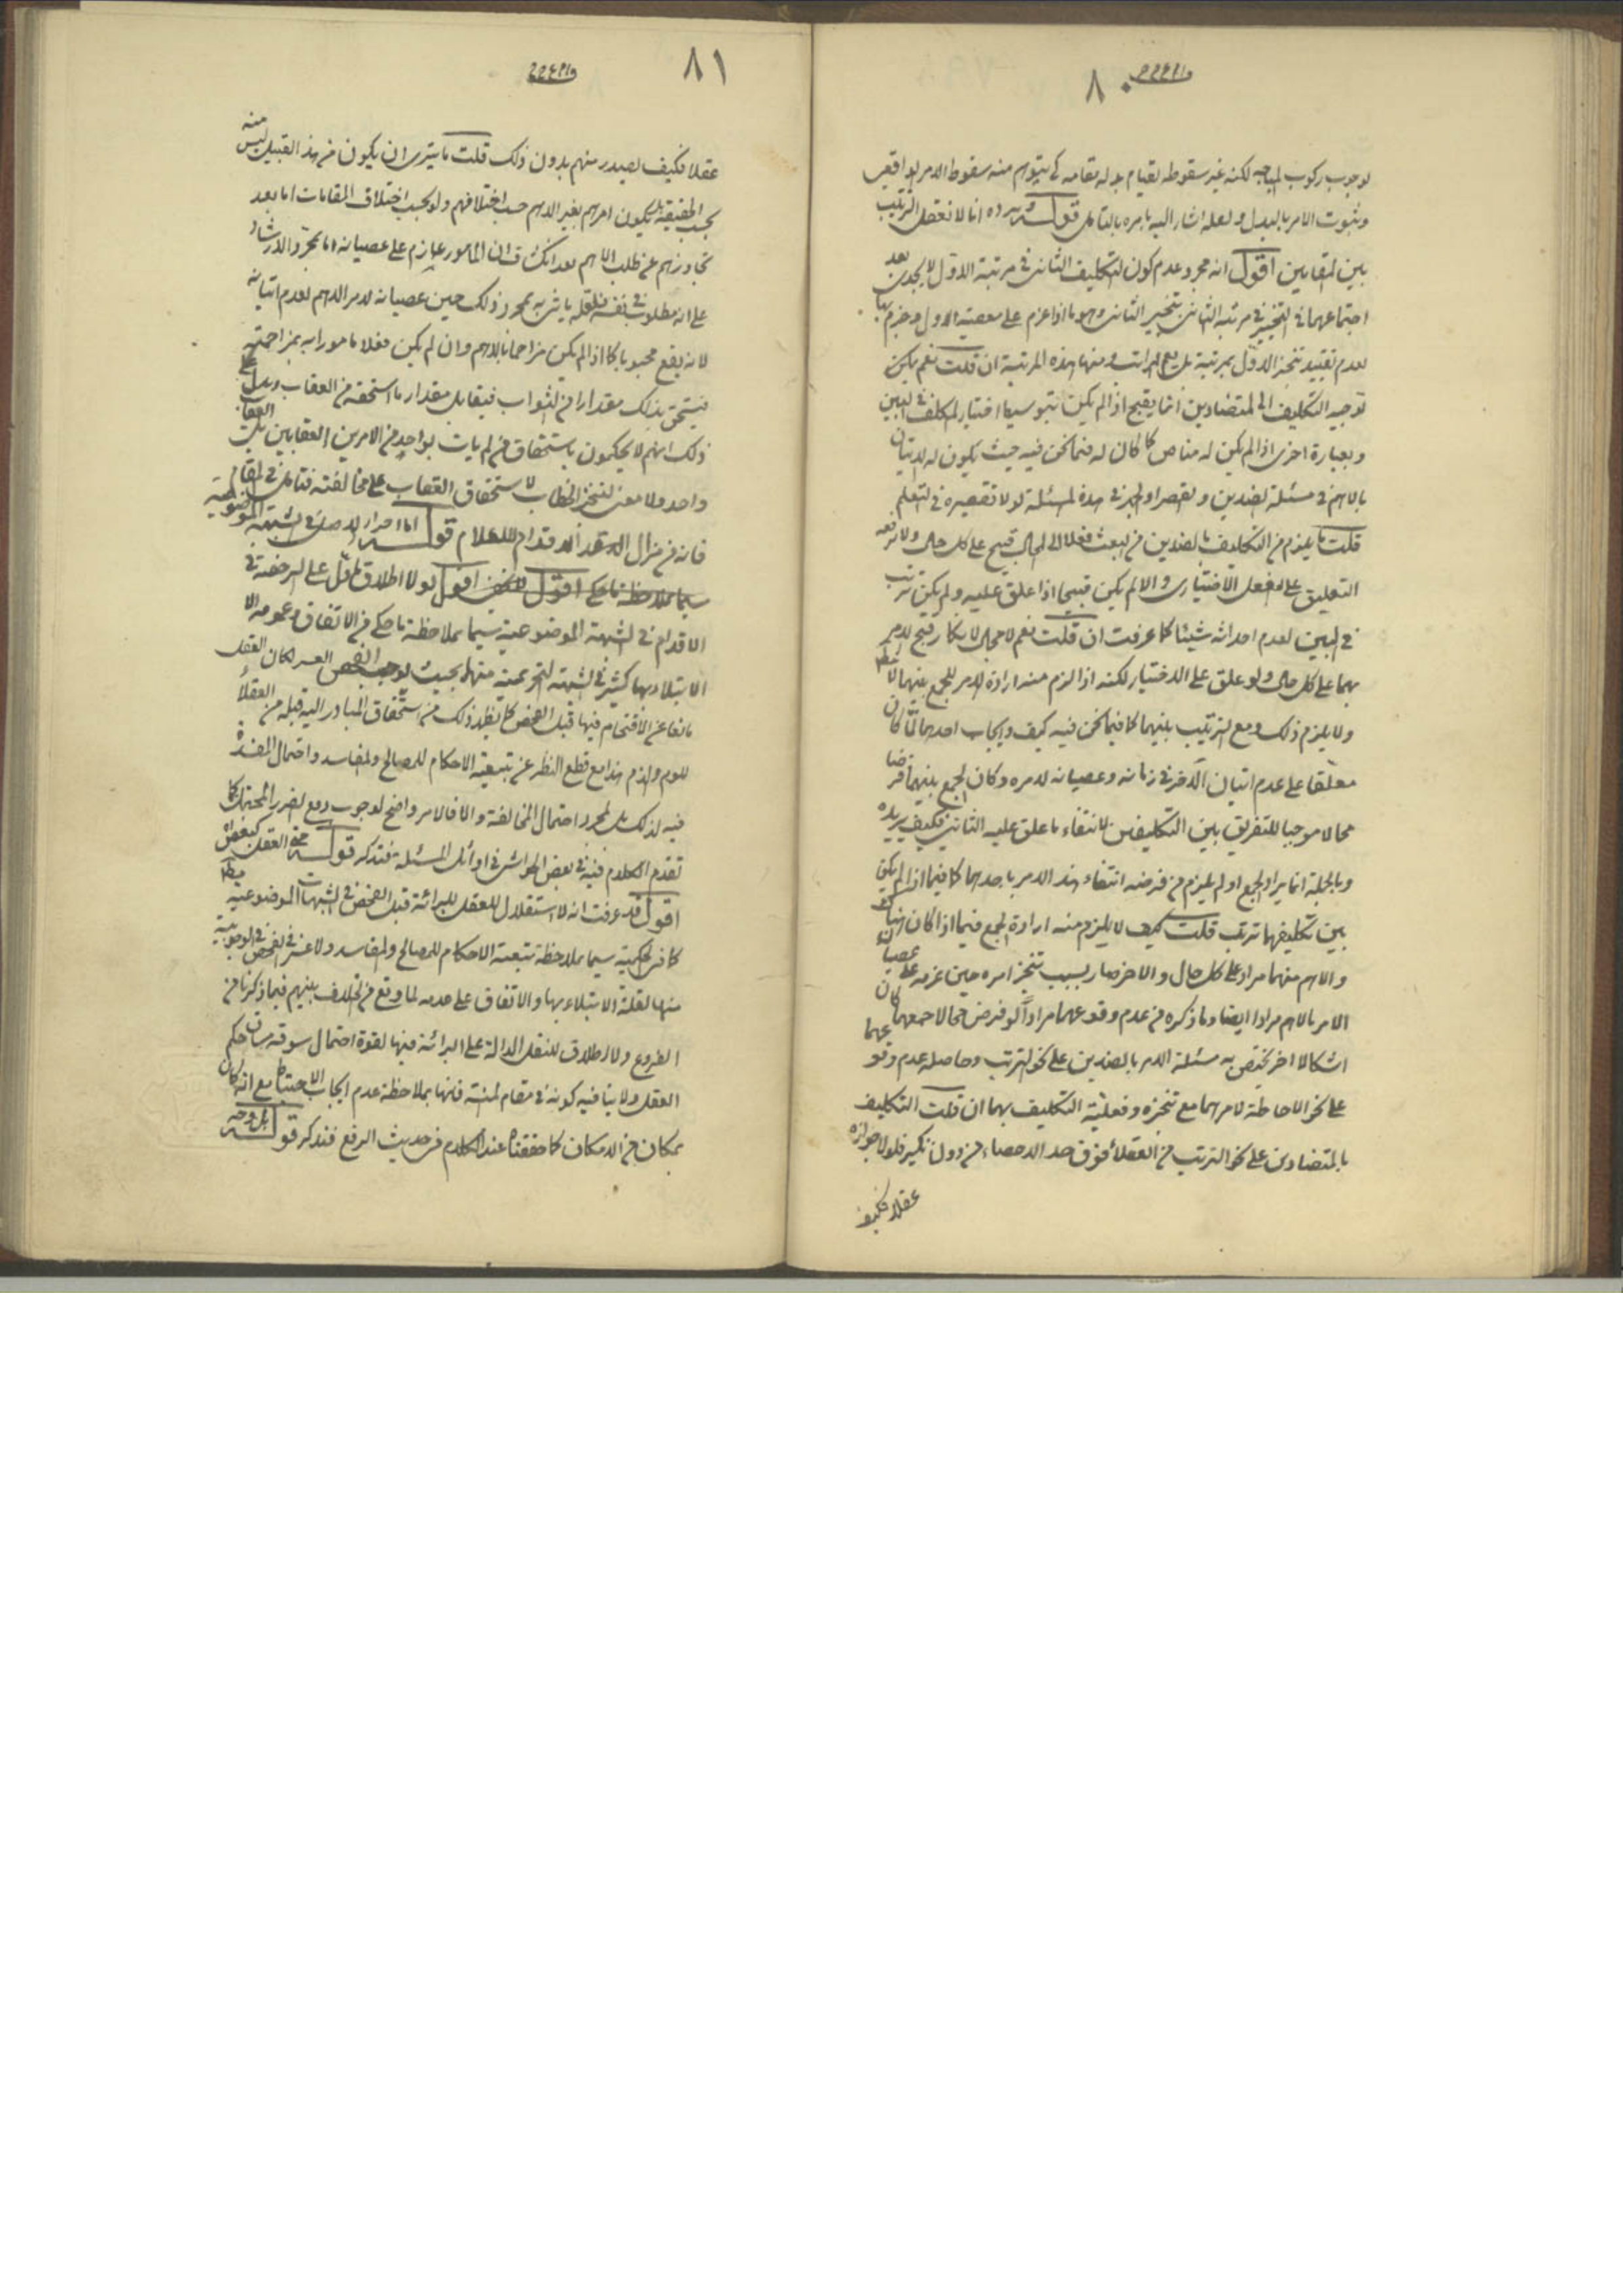 ٨٠
لوجوب ركوب لكنه غير سقوطه لقيام بدله مقامه كى يتوهم منه سقوط الامر الواقعى
وثبوت الامر بالبدل ولعله اشار اليه بامره بالتامل قوله ويرده انا لا نعقل الترتيب
بين المقامين اقول انه مجرد عدم كون التكليف الثانى فى مرتبة الاول لا يجدى بعد
اجتماعهما فى التنجيز فى مرتبة الثانى بتنجيز الثانى وهو ما اذا عزم على معصية الاول وجزم بها
لعدم تقييد تنجز الاول بمرتبة بل يعم المراتب ومنها هذه المرتبة ان قلت نعم لكن
توجيه التكليف الى المتضادين انما يقبح اذا لم يكن بتوسيط اختيار المكلف فى البين
وبعبارة اخرى اذا لم يكن له مناص كما كان له فيما نحن فيه حيث يكون له الاتيان
بالاهم فى مسئلة الضدين والقصر او الجهر فى هذه المسئلة لولا تقصيره فى التعلم
قلت ما يلزم من التكليف بالضدين من البعث فعلا الى المحال قبيح على كل حال ولا يرفعه
التعليق على الفعل الاختيارى والا لم يكن قبيحا اذا علق عليه ولم يكن ترتب
فى البين لعدم احداثه شيئا كما عرفت ان قلت نعم لا مجال لانكار قبح الامر
بهما على كل حال ولو علق على الاختيار لكنه اذا لزم منه ارادة الامر للجمع بينهما لا مطلقا
ولا يلزم ذلك ومع الترتيب بينهما كما فيما نحن فيه كيف وايجاب احدهما لما كان
معلقا على عدم اتيان الاخر فى زمانه وعصيانه لامره وكان الجمع بينهما فرضا
محالا موجبا للتفريق بين التكليفين لانتفاء ما علق عليه الثانى فكيف يريده
وبالجملة انما يراد الجمع او لم يلزم من فرضه انتفاء هذا الامر باحدهما كما فيما اذا لم يكن
بين تكليفهما ترتب قلت كيف لا يلزم منه ارادة الجمع فيما اذا كان هناك
والاهم منهما مراد على كل حال والاخر صار بسبب تنجز امره حين عزمه على عصيان
الامر بالاهم مرادا ايضا وما ذكره من عدم وقوعهما مرادا لو فرض محالا جمعهما كان
اشكالا اخر يختص به مسئلة الامر بالضدين على نحو الترتب وحاصله عدم وقوعهما
على نحو الاحاطة لامرهما مع تنجزه وفعلية التكليف بهما ان قلت التكليف
بالمتضادين على نحو الترتب من العقلاء فوق حد الاحصاء من دون نكير فلولا جوازه
عقلا فكيف
٨١
عقلا فكيف يصدر منهم بدون ذلك قلت ما يترى ان يكون من هذا القبيل ليس منه
بحسب الحقيقة بل يكون امرهم بغير الاهم حسب اختلافهم ولو بحسب اختلاف المقامات اما بعد
تجاوزهم عن طلب الاهم بعد انكشاف ان المامور عازم على عصيانه واما بمجرد الارشاد
على انه مطلوب فى نفسه فلعله ياتى به بمجرد ذلك حين عصيانه لامر الاهم لعدم اتيانه
لانه يقع محبوبا كما اذا لم يكن مزاحما بالاهم وان لم يكن فعلا مامورا به بمزاحمته
فيستحق بذلك مقدارا من الثواب فيقابل مقدار ما استحقه من العقاب ويدل على
ذلك انهم لا يحكمون باستحقاق من لم يات بواحد من الامرين العقابين بل العقاب
واحد ولا معنى لتنجز الخطاب الا استحقاق العقاب على مخالفته فتامل فى المقام
فانه من مزال الاقدام للاعلام قوله اما اصل الاصل فى الشبهة الموضوعية
اقول لولا اطلاق ما دل على الرخصة فى
الاقدام فى الشبهة الموضوعية سيما بملاحظة ما حكى من الاتفاق وعموم الا
الابتلاء بها كثيرا فى الشبهة التحريمية منها بحيث يوجب الفحص العسر لكان العقل
مانعا عن الاقتحام فيها قبل الفحص كما يظهر ذلك من استحقاق المبادر اليه قبله من العقلاء
للوم والذم هذا مع قطع النظر عن تبعية الاحكام للمصالح والمفاسد واحتمال المفسدة
فيه لذلك بل لمجرد احتمال المخالفة والا فالامر واضح لوجوب دفع الضرر المحتمل كما
تقدم الكلام فيه فى بعض الحواشى فى اوائل المسئلة فتذكر قوله
اقول قد عرفت انه لا استقلال للعقل للبرائة قبل الفحص فى الشبهات الموضوعية مطلقا
كما فى الحكمية سيما بملاحظة تبعية الاحكام للمصالح والمفاسد ولا عسر فى الفحص فى الوجوبية
منها لقلة الابتلاء بها والاتفاق على عدمه لما وقع من الخلاف بينهم فيما ذكرنا من
الفروع ولا اطلاق للنقل الدالة على البرائة فيها لقوة احتمال سوقه مساق حكم
العقل ولا ينافيه كونه فى مقام المنة فانها بملاحظة عدم ايجاب الاحتياط مع انه كان
بمكان من الامكان كما حققناه عند الكلام فى حديث الرفع فتذكر قوله